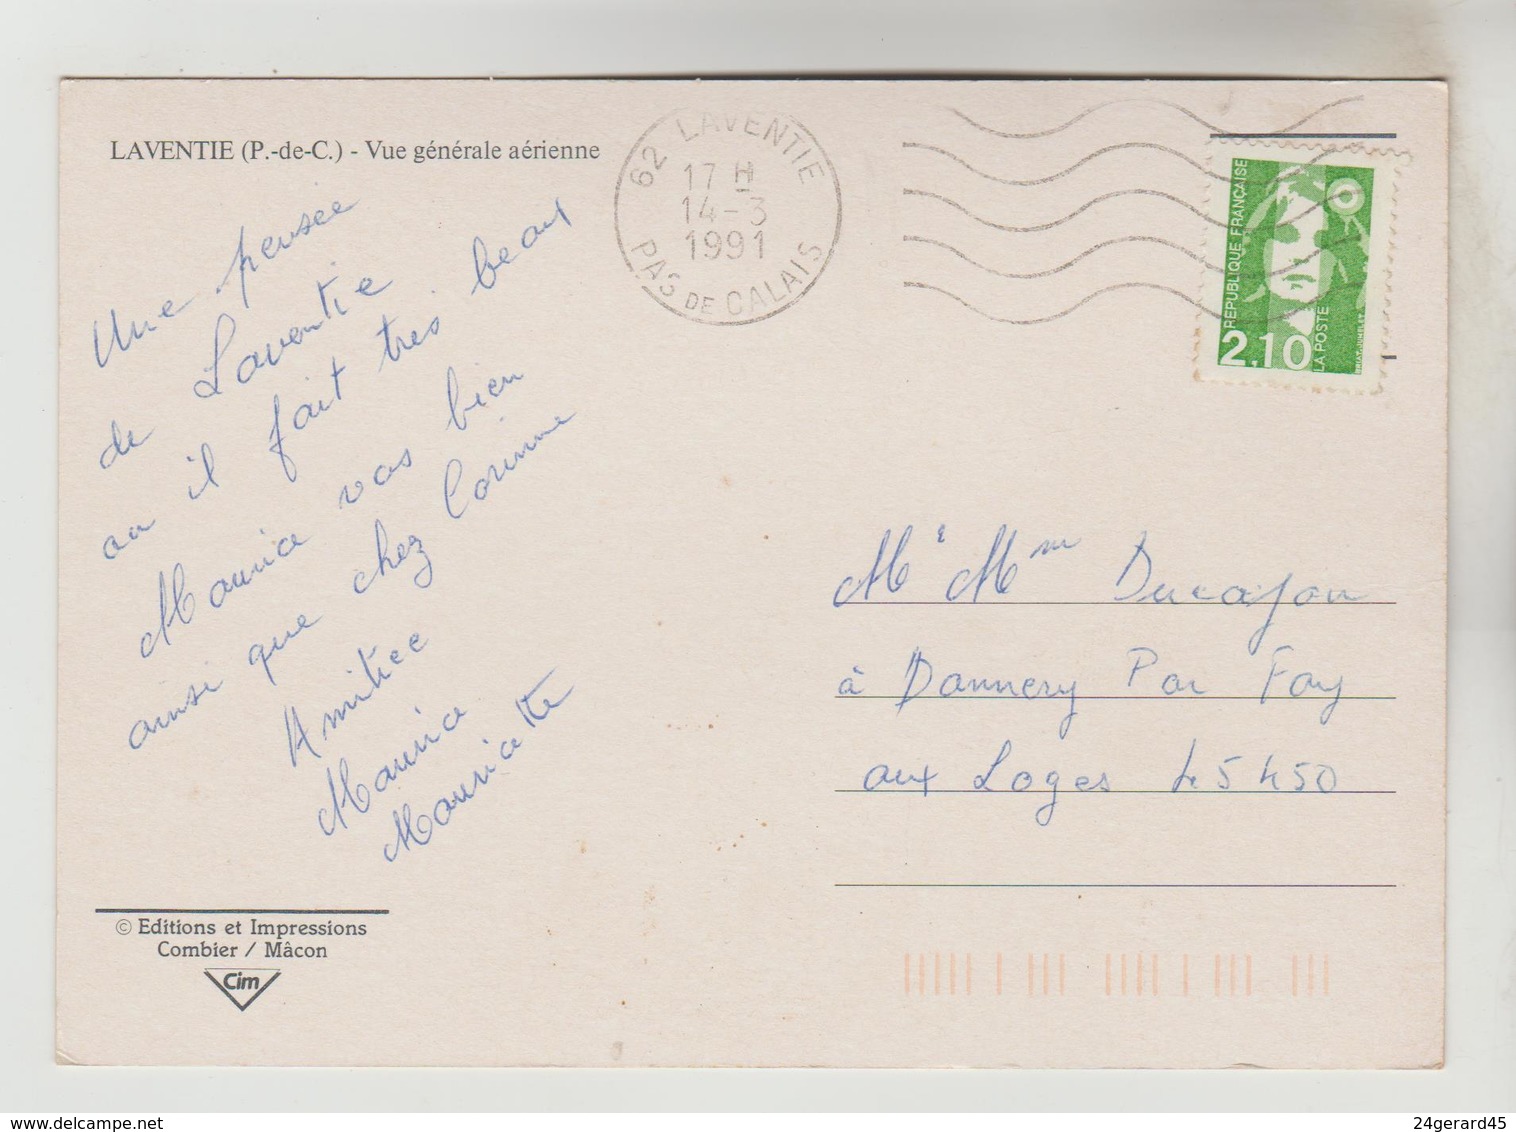 LAVENTIE (P.-de-C.) - Vue générale aérienne
Une pensée
de Laventie
ou il fait tres beaux
Maurice vas bien
ainsi que chez Corinne
Amitiee
Maurice
Mauricette
© Editions et Impressions
Combier / Mâcon
Cim
62 LAVENTIE
17 H
14-3
1991
PAS DE CALAIS
REPUBLIQUE FRANÇAISE
2,10
LA POSTE
BRIAT-JUMELET
M & Mm
à Donnery Par Fay
aux Loges 45450
24gerard45